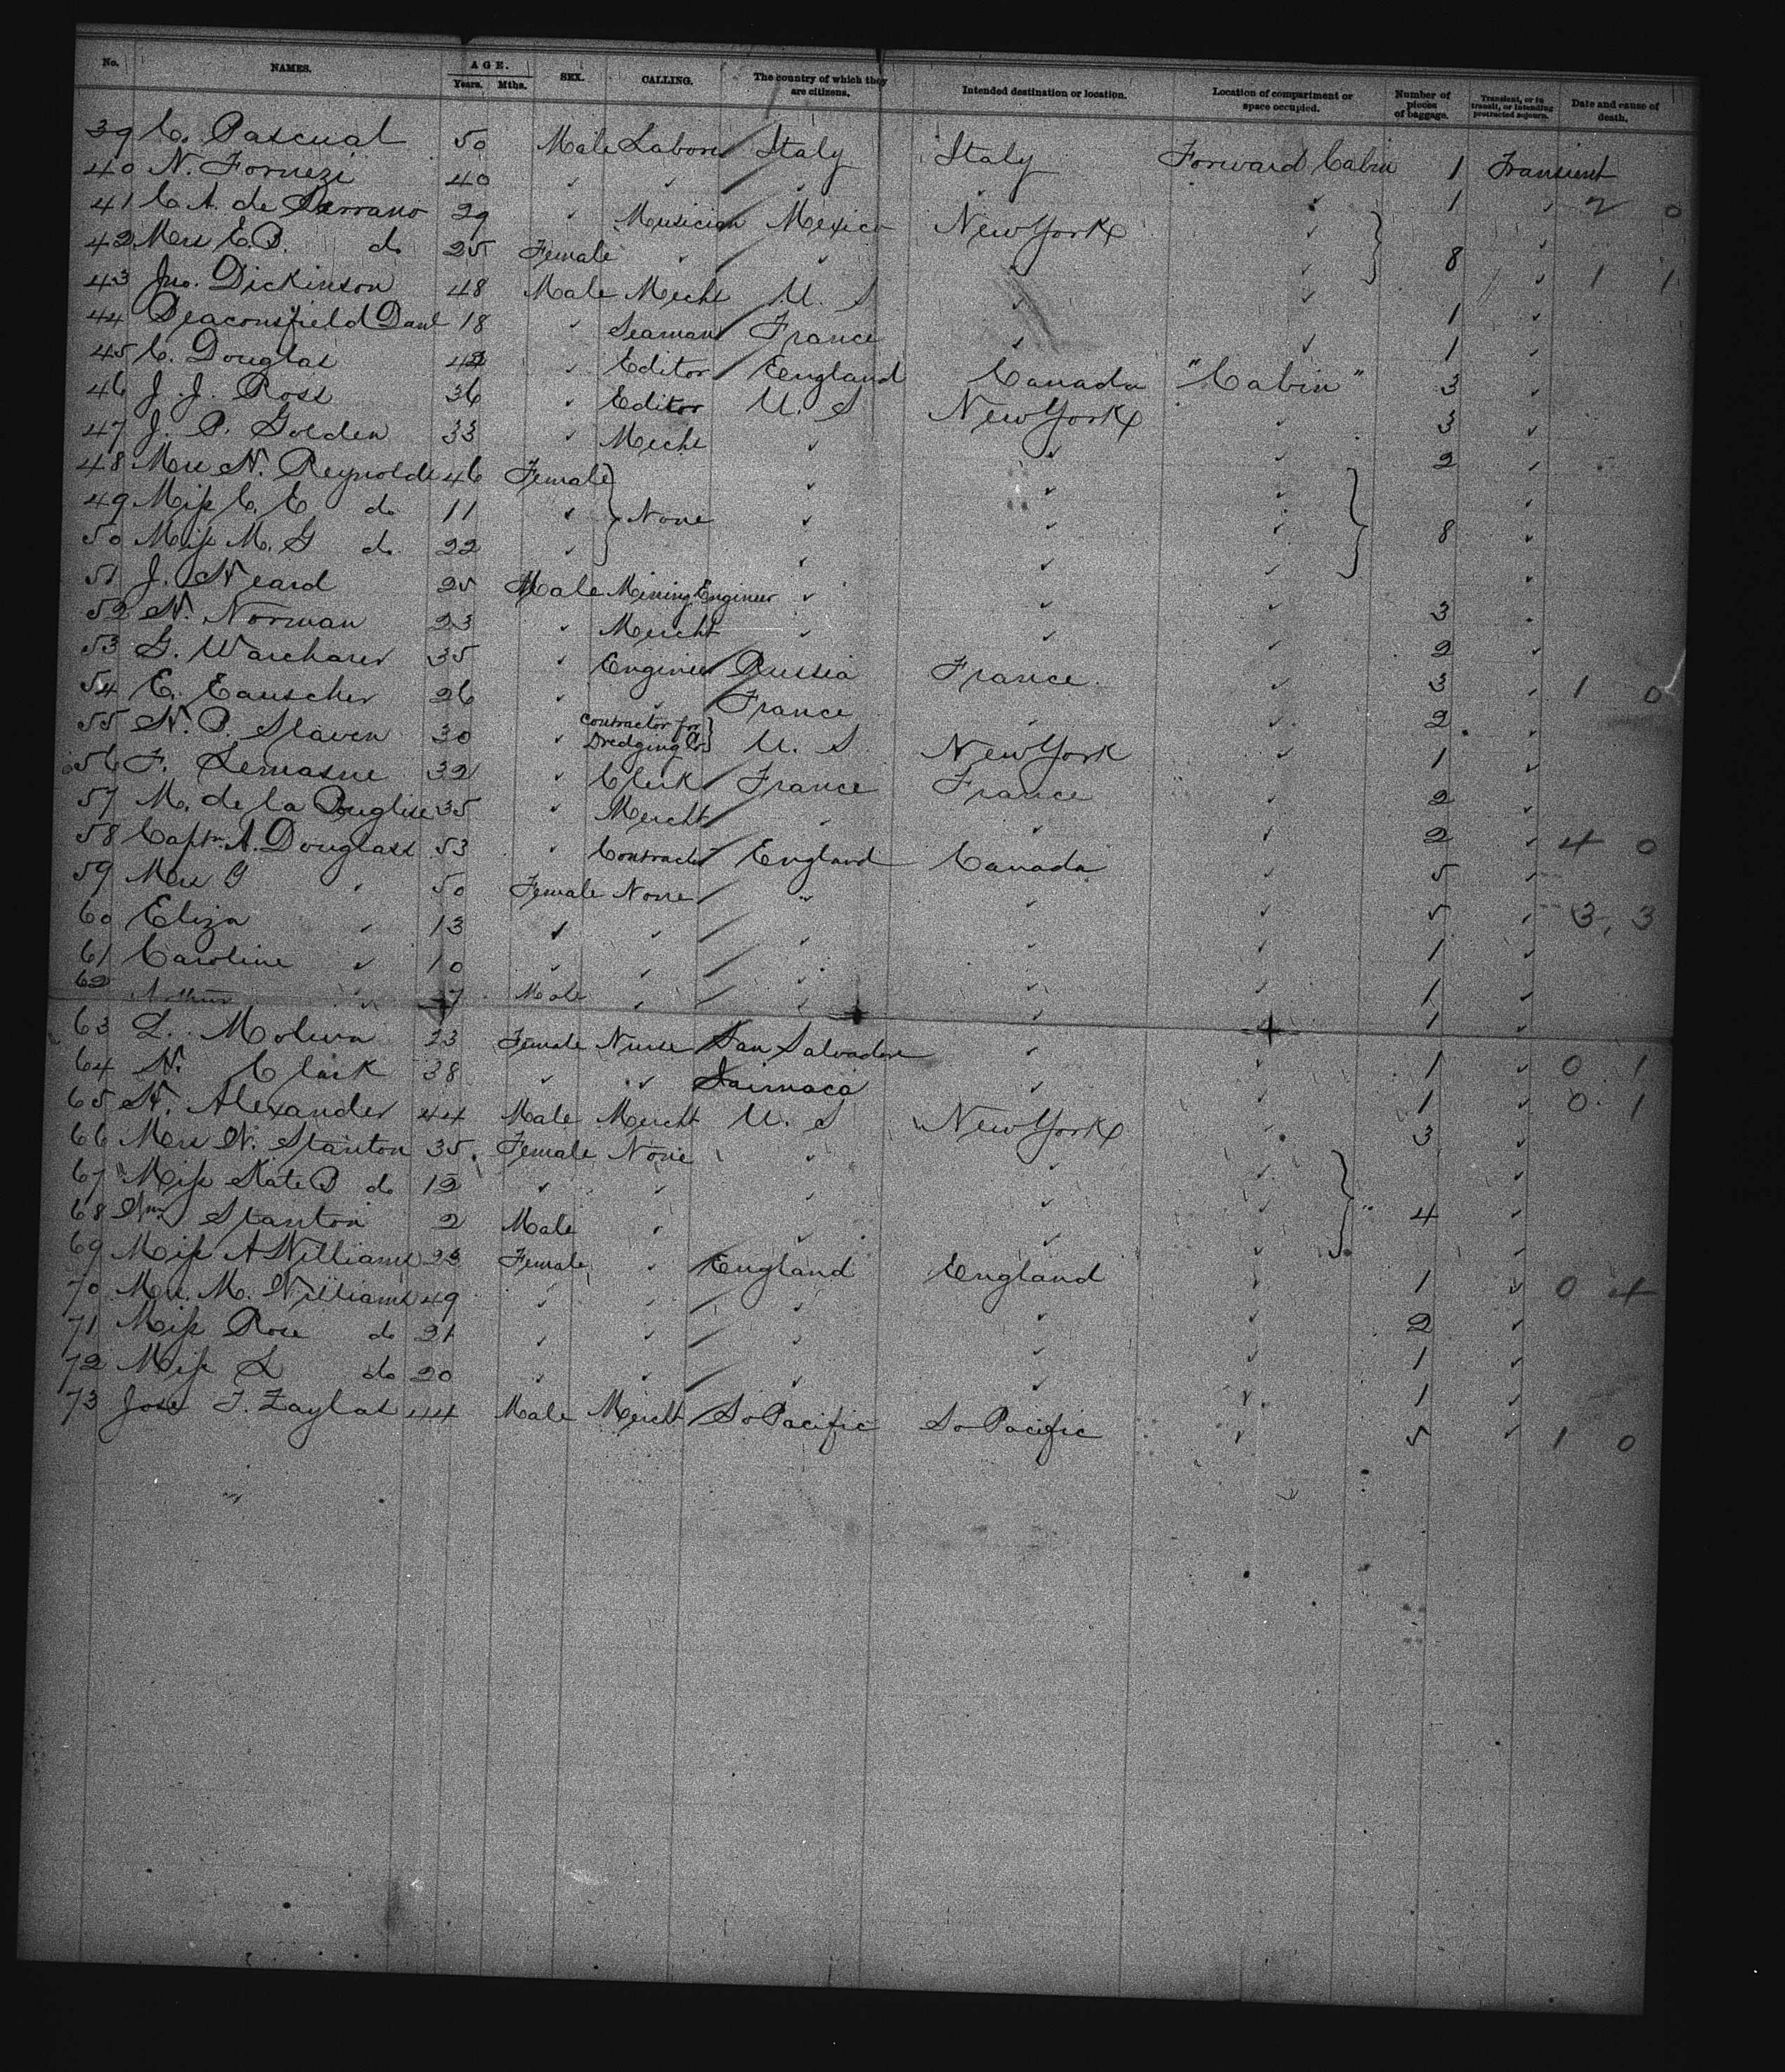 No. NAMES. AGE. Years. Mths. SEX. CALLING. The country of which they are citizens. Intended destination or location. Location of compartment or space occupied. Number of pieces of baggage. Transient, or in transit, or intending protracted sojourn. Date and cause of death.
39 C. Pascual 50 Male Laborer Italy Italy Forward Cabin 1 Transient
40 N. Fornezi 40 ✓ ✓ ✓ ✓ ✓ 1 ✓ 2 0
41 C. A. de Serrano 29 ✓ Musician Mexico New York ✓ ✓
42 Mrs E. B. do 25 Female ✓ ✓ ✓ ✓ 8 ✓ 1 1
43 Jno. Dickinson 48 Male Mecht U. S ✓ ✓ 1 ✓
44 Deaconsfield Danl 18 ✓ Seaman France ✓ ✓ 1 ✓
45 C. Douglas 42 ✓ Editor England Canada "Cabin" 3 ✓
46 J. J. Ross 36 ✓ Editor U. S New York ✓ 3 ✓
47 J. P. Golden 33 ✓ Mecht ✓ ✓ ✓ 2 ✓
48 Mrs N. Reynolds 46 Female ✓ ✓ ✓ ✓
49 Miss C. E. do 11 ✓ None ✓ ✓ ✓ 8 ✓
50 Miss M. G do 22 ✓ ✓ ✓ ✓ ✓
51 J. Heard 25 Male Mining Engineer ✓ ✓ ✓ 3 ✓
52 N. Norman 23 ✓ Mercht ✓ ✓ ✓ 2 ✓
53 G. 35 ✓ Engineer Russia France ✓ 3 ✓ 1 0
54 E. Eauscher 26 ✓ ✓ France ✓ ✓ 2 ✓
55 H. B. Slaven 30 ✓ Contractor for Dredging Co. U. S New York ✓ 1 ✓
56 F. Lemasne 32 ✓ Clerk France France ✓ 2 ✓
57 M. de la 35 ✓ Mercht ✓ ✓ ✓ 2 ✓ 4 0
58 Captn. A. Douglass 53 ✓ Contractor England Canada ✓ 5 ✓
59 Mrs G ✓ 50 Female None ✓ ✓ ✓ 5 ✓ 3, 3
60 Eliza ✓ 13 ✓ ✓ ✓ ✓ ✓ 1 ✓
61 Caroline ✓ 10 ✓ ✓ ✓ ✓ ✓ 1 ✓
62 Arthur ✓ Male ✓ ✓ ✓ 1 ✓
63 L. Molina 23 Female Nurse San Salvadore ✓ ✓ 1 ✓ 0 1
64 N. Clark 38 ✓ ✓ Jaimaca ✓ ✓ 1 ✓ 0 1
65 H. Alexander 44 Male Mercht U. S New York ✓ 3 ✓
66 Mrs N. Stanton 35 Female None ✓ ✓ ✓ ✓
67 Miss Kate B do 12 ✓ ✓ ✓ ✓ ✓ 4 ✓
68 Wm Stanton 2 Male ✓ ✓ ✓ ✓ ✓
69 Miss A Williams 23 Female ✓ England England ✓ 1 ✓ 0 4
70 Mrs. M. Williams 49 ✓ ✓ ✓ ✓ ✓ 2 ✓
71 Miss Rose do 21 ✓ ✓ ✓ ✓ ✓ 1 ✓
72 Miss L do 20 ✓ ✓ ✓ ✓ ✓ 1 ✓
73 Jose T. Zaylat 44 Male Mercht So Pacific So Pacific ✓ 5 ✓ 1 0